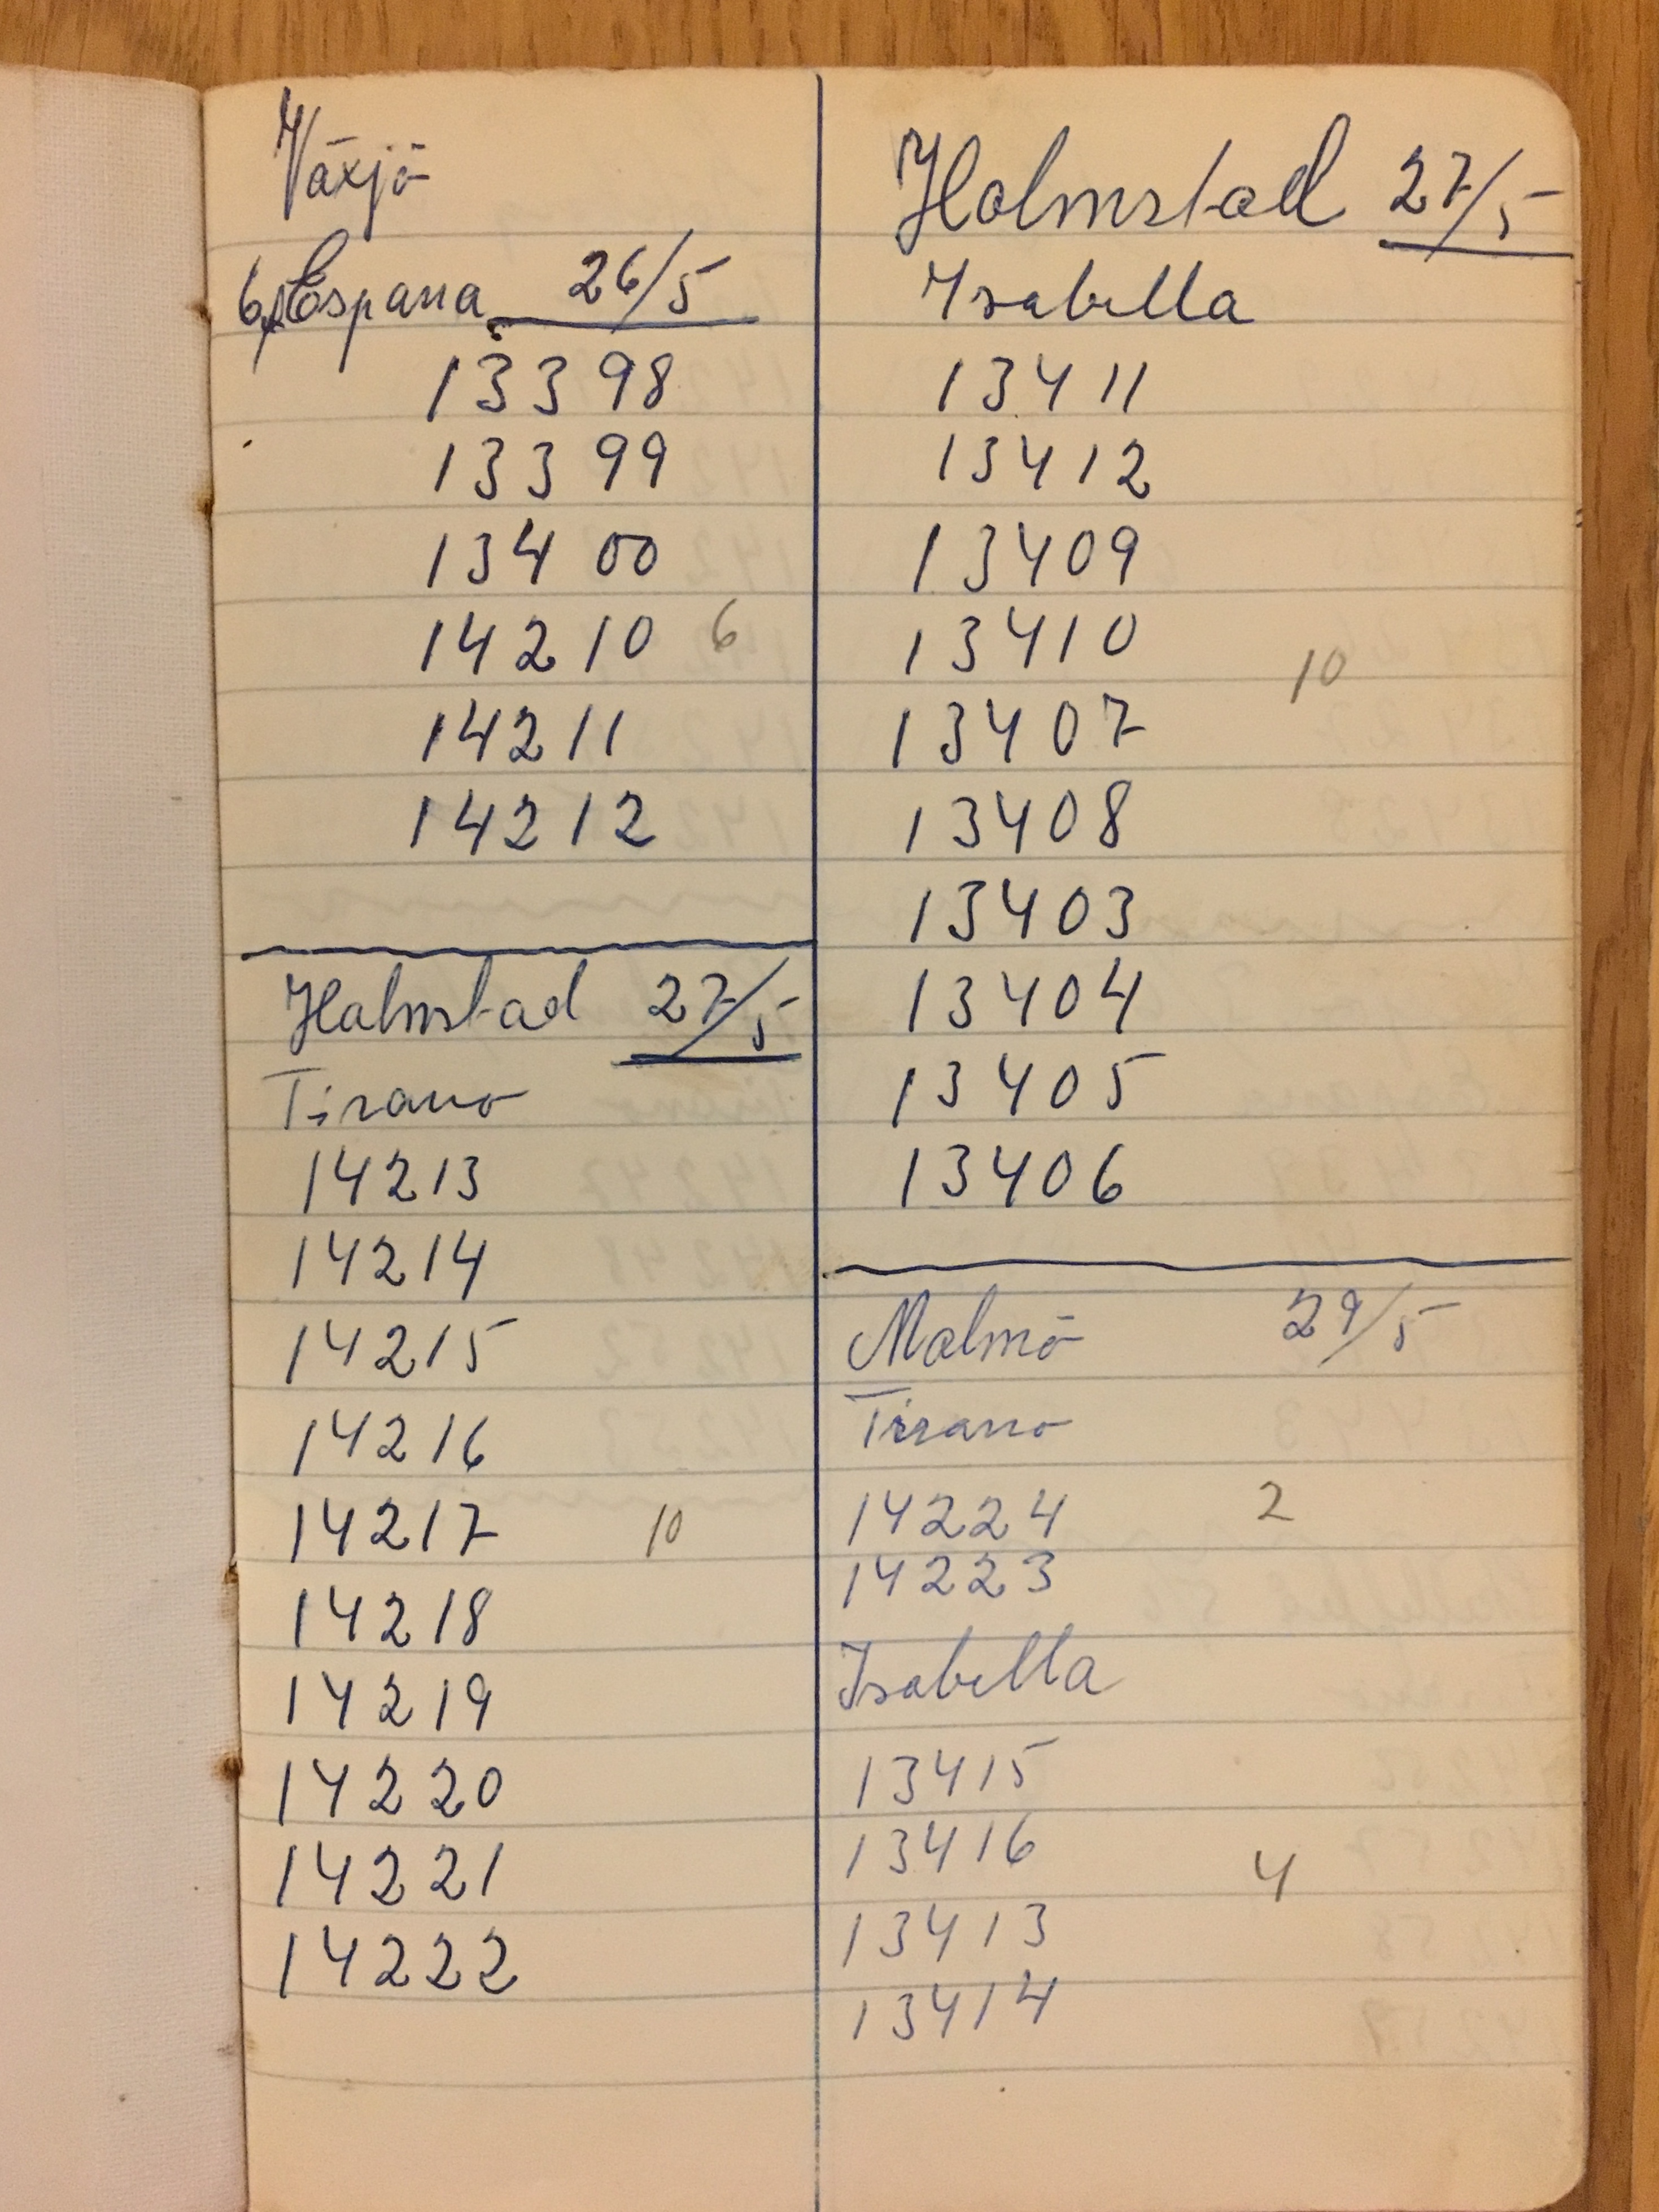 Växjö
6 st Espana 26/5
13398
13399
13400
14210 6
14211
14212
Halmstad 27/5
Tirano
14213
14214
14215
14216
14217 10
14218
14219
14220
14221
14222
Halmstad 27/5
Isabella
13411
13412
13409
13410
10
13407
13408
13403
13404
13405
13406
Malmö 29/5
Tirano
14224 2
14223
Isabella
13415
13416
4
13413
13414